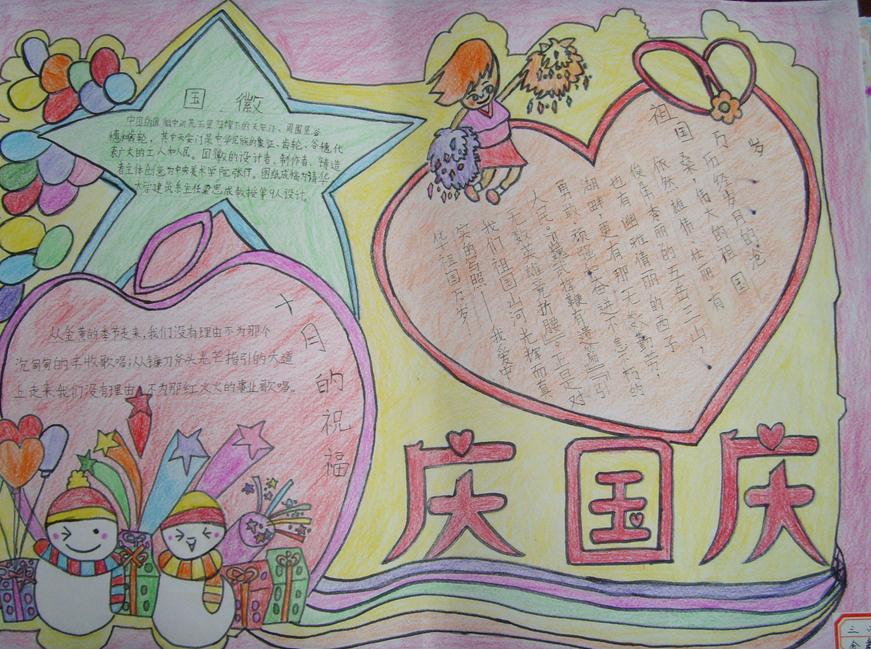 国徽
中国的国徽中间是五星照耀下的天安门，周围是谷
穗和齿轮，其中天安门是中华民族的象征，齿轮、谷穗代
表广大的工人和人民。国徽的设计者、制作者、铸造
者主体创意为中央美术学院张仃。图纸成稿为清华
大学建筑系主任梁思成教授等9人设计。
十月的祝福
从金黄的季节走来，我们没有理由不为那个
沉甸甸的丰收歌唱；从镰刀斧头光芒指引的大道
上走来，我们没有理由不为那红火火的事业歌唱。
祖国万岁
历经岁月的沧
桑，伟大的祖国
依然雄伟、壮丽。有
俊秀丽的五岳三山，
也有幽雅倩丽的西子
湖畔，更有那无数勤劳、
勇敢、顽强、奋进不息的
人民。
无数英雄
我们祖国山河光辉而真
实的写照——我爱中
华祖国万岁
庆国庆